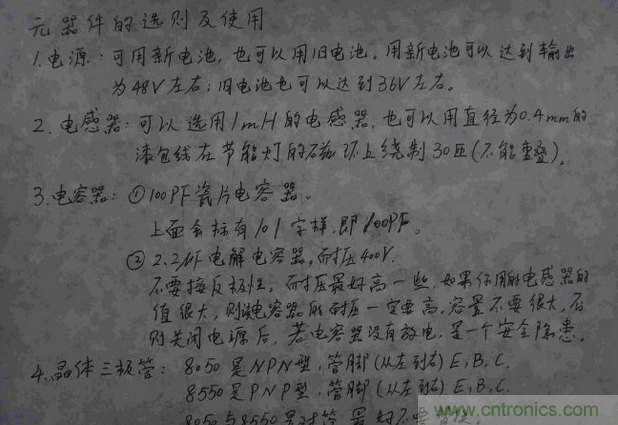 元器件的选则及使用
1.电源：可用新电池，也可以用旧电池。用新电池可以达到输出
为48V左右；旧电池也可以达到36V左右。
2.电感器：可以选用1mH的电感器，也可以用直径为0.4mm的
漆包线在节能灯的磁环上绕制30匝(不能重叠)。
3.电容器：①100PF瓷片电容器。
上面会标有101字样，即100PF。
②2.2μF电解电容器。耐压400V.
不要接反极性。耐压最好高一些，如果你用的电感器的
值很大，则该电容器的耐压一定要高，容量不要很大，否
则关闭电源后，若电容器没有放电，是一个安全隐患。
4.晶体三极管：8050是NPN型，管脚(从左到右)E,B,C.
8550是PNP型，管脚(从左到右)E,B,C.
8050与8550是对管，最好不要
www.cntronics.com